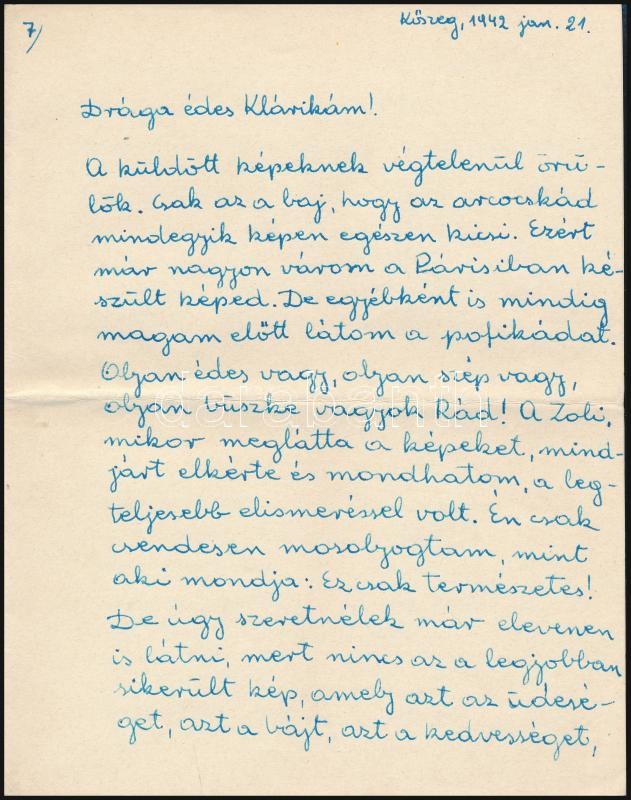 7/
Kőszeg, 1942 jan. 21.
Drága édes Klárikám!
A küldött képeknek végtelenül örü-
lök. Csak az a baj, hogy az arcocskád
mindegyik képen egészen kicsi. Ezért
már nagyon várom a Párisiban ké-
szült képed. De egyébként is mindig
magam előtt látom a pofikádat.
Olyan édes vagy, olyan szép vagy,
olyan büszke vagyok Rád! A Zoli,
mikor meglátta a képeket, mind-
járt elkérte és mondhatom, a leg-
teljesebb elismeréssel volt. Én csak
csendesen mosolyogtam, mint
aki mondja: Ez csak természetes!
De úgy szeretnélek már elevenen
is látni, mert nincs az a legjobban
sikerült kép, amely azt az üdesé-
get, azt a bájt, azt a kedvességet,
darabanth